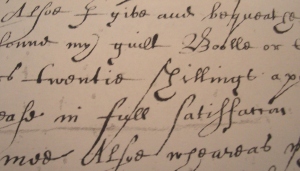 Alsoe I give and bequeathe
my guilt Bolle or
twentie Shillings
in full satisfaction
mee Alsoe whereas